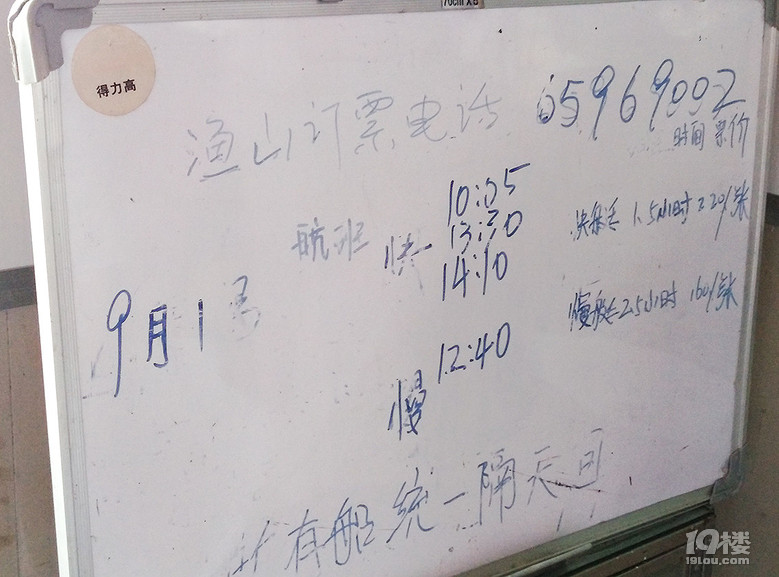 得力高
渔山订票电话 65969002
时间 票价
航班 快 10:05
13:30
14:10
快船 1.5小时 220/张
9月1号
慢船 2.5小时 160/张
慢 12:40
所有船统一隔天回
19楼
19lou.com